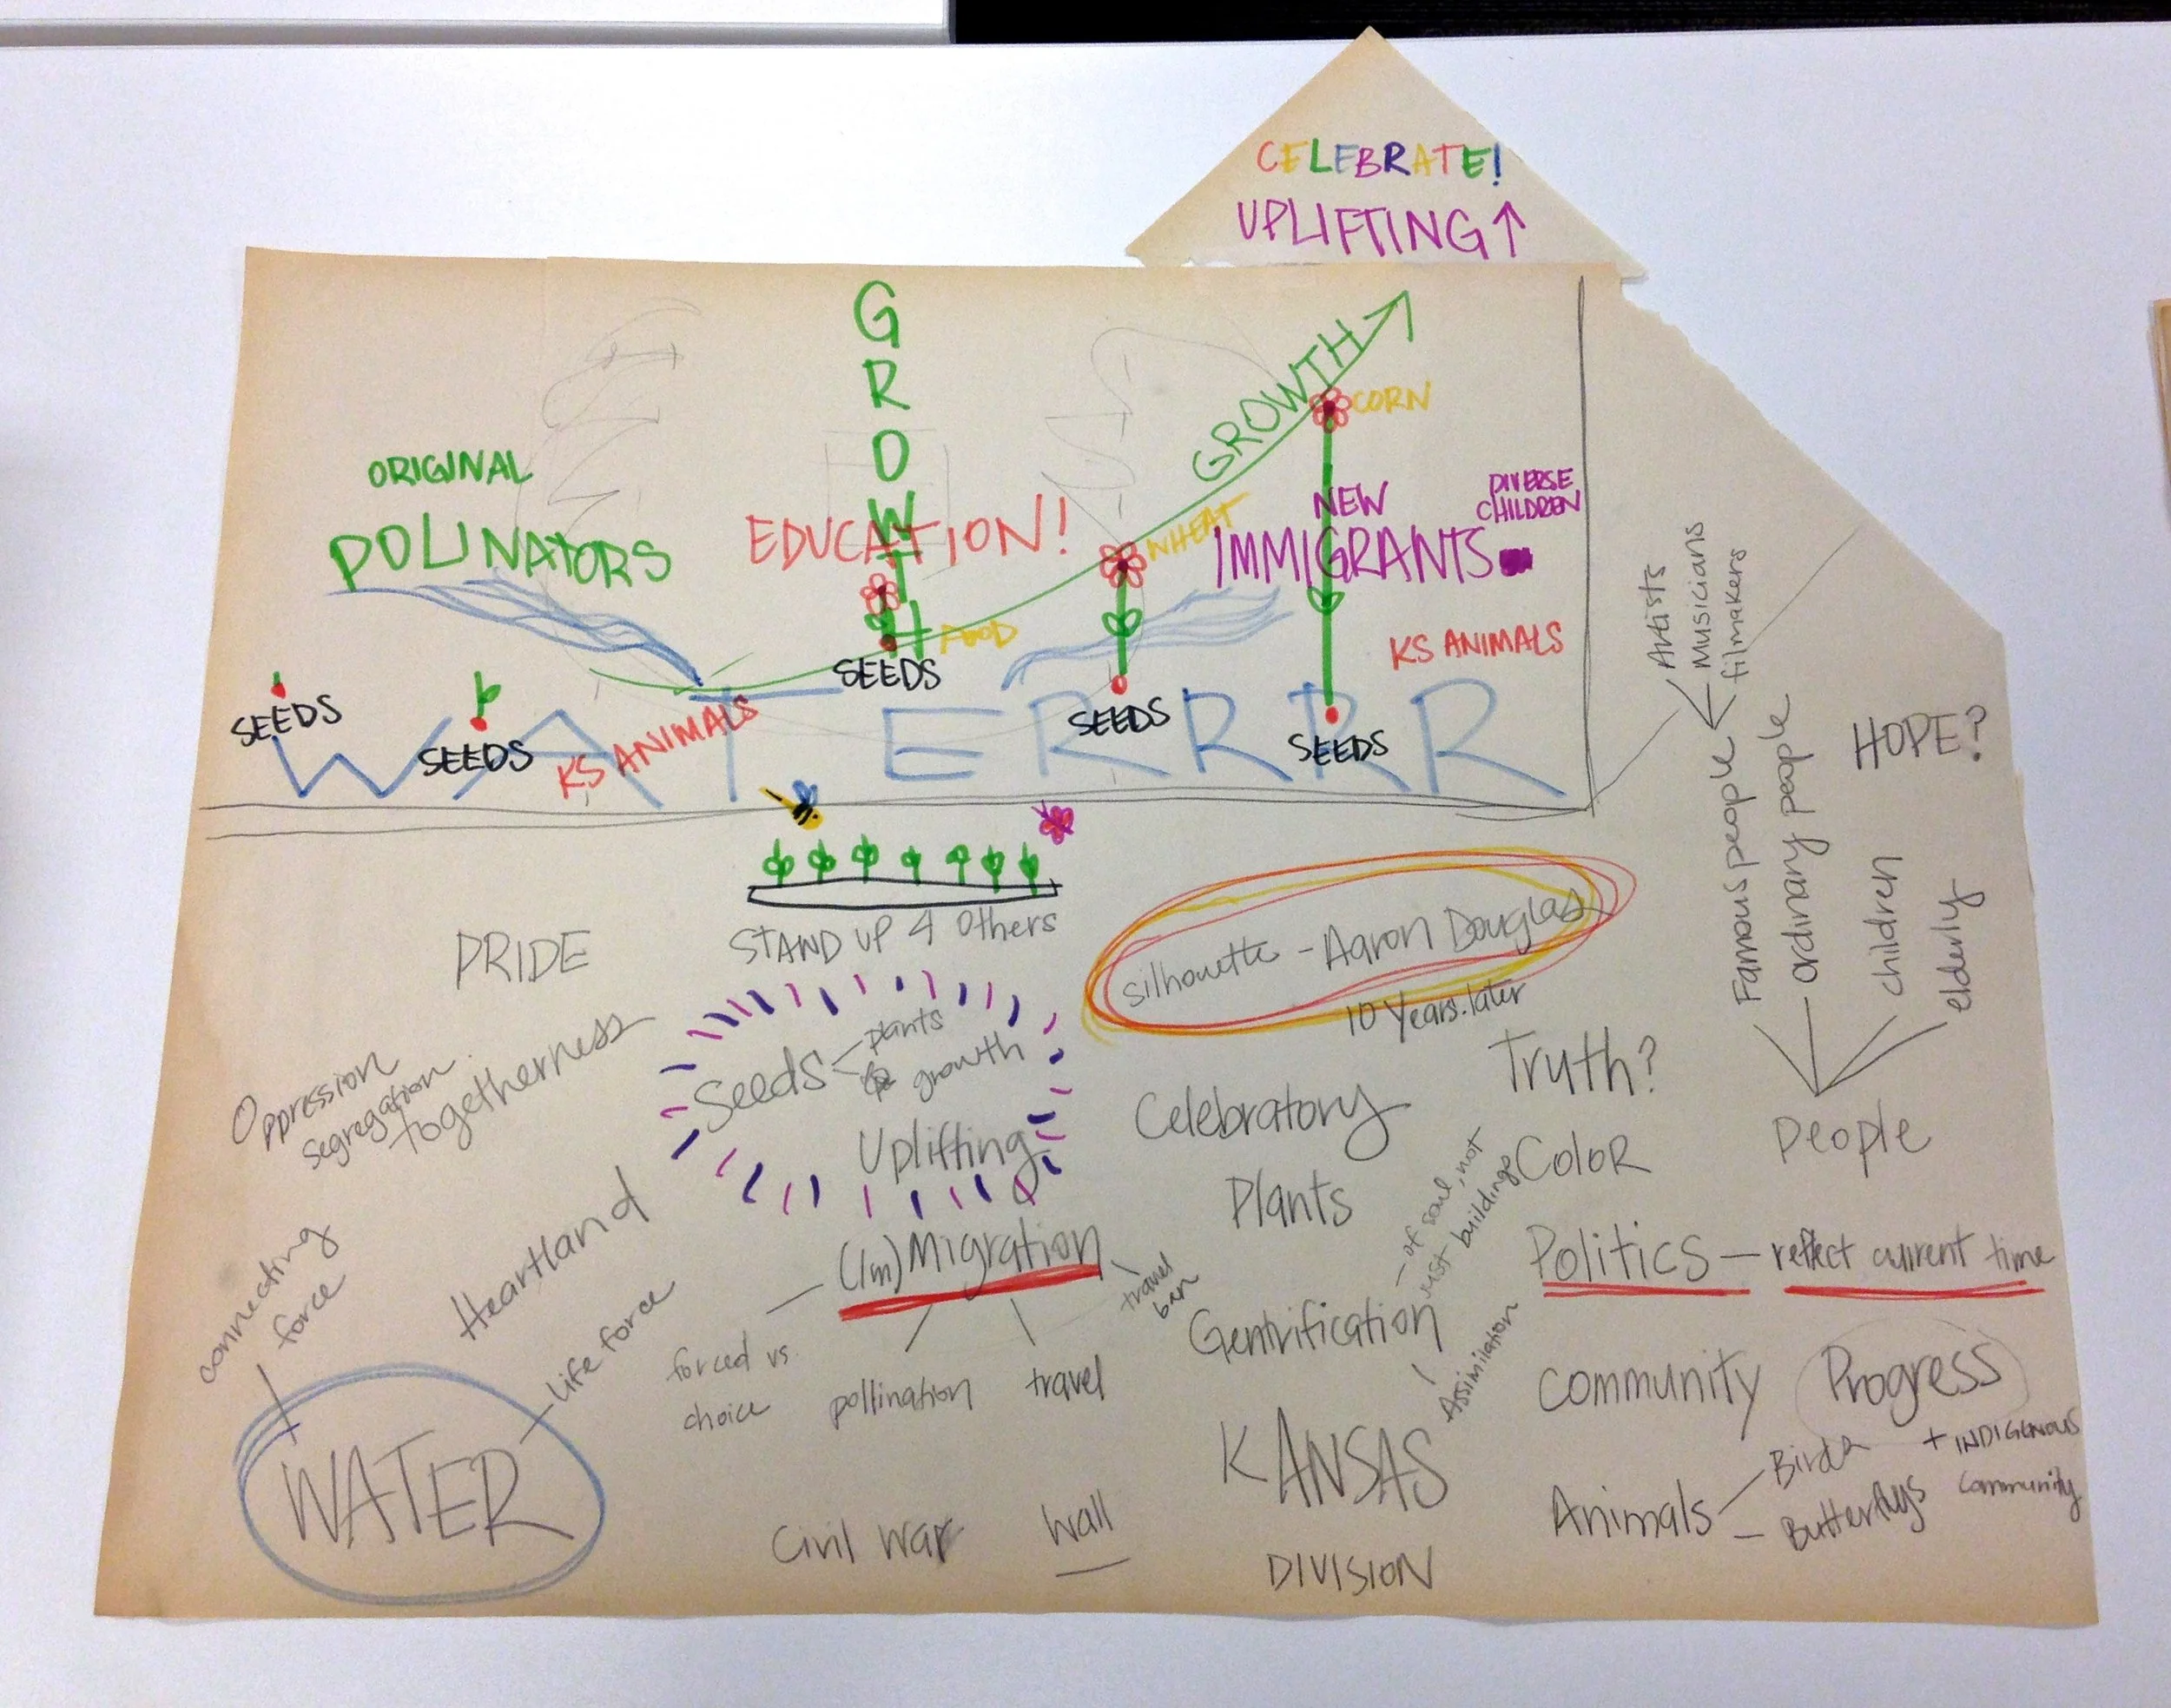 CELEBRATE!
UPLIFTING
GROWTH
GROWTH
CORN
ORIGINAL
POLINATORS
EDUCATION!
WHEAT
NEW
IMMIGRANTS
DIVERSE
CHILDREN
FOOD
KS ANIMALS
SEEDS
SEEDS
SEEDS
SEEDS
SEEDS
KS ANIMALS
WATERRRR
Artists
Musicians
filmakers
Famous people
ordinary people
children
elderly
HOPE?
People
STAND UP 4 Others
PRIDE
silhouette - Aaron Douglas
10 Years later
Oppression
segregation
togetherness
Seeds
plants
& growth
Uplifting
Celebratory
Truth?
Plants
Color
Heartland
connecting
force
WATER
life force
(Im)Migration
forced vs.
choice
pollination
travel
travel
ban
Gentrification
- of soul, not
just buildings
Assimilation
Politics - reflect current time
Community
Progress
KANSAS
Animals
Birds
- Butterflys
+ INDIGENOUS
Community
Civil War
Wall
DIVISION